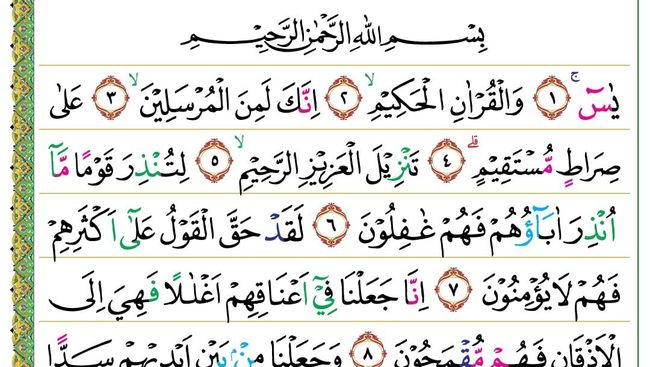 بِسْمِ اللهِ الرَّحْمٰنِ الرَّحِيْمِ
يٰسٓ ۚ ۝١ وَالْقُرْاٰنِ الْحَكِيْمِ ۙ ۝٢ اِنَّكَ لَمِنَ الْمُرْسَلِيْنَ ۙ ۝٣ عَلٰى
صِرَاطٍ مُّسْتَقِيْمٍ ۗ ۝٤ تَنْزِيْلَ الْعَزِيْزِ الرَّحِيْمِ ۙ ۝٥ لِتُنْذِرَ قَوْمًا مَّآ
اُنْذِرَ اٰبَاۤؤُهُمْ فَهُمْ غٰفِلُوْنَ ۝٦ لَقَدْ حَقَّ الْقَوْلُ عَلٰٓى اَكْثَرِهِمْ
فَهُمْ لَا يُؤْمِنُوْنَ ۝٧ اِنَّا جَعَلْنَا فِيْٓ اَعْنَاقِهِمْ اَغْلٰلًا فَهِيَ اِلَى
الْاَذْقَانِ فَهُمْ مُّقْمَحُوْنَ ۝٨ وَجَعَلْنَا مِنْۢ بَيْنِ اَيْدِيْهِمْ سَدًّا